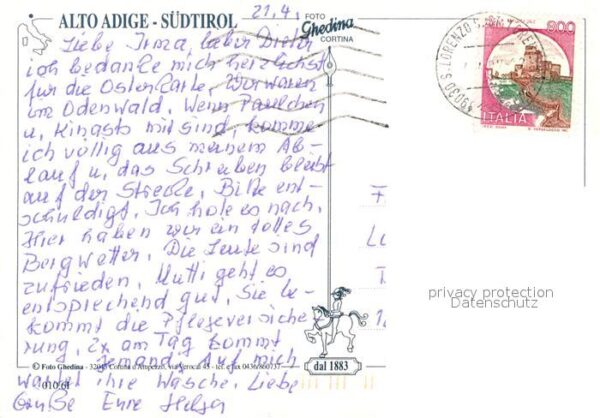 21.4.
ALTO ADIGE - SÜDTIROL
FOTO
Ghedina
CORTINA
Liebe Irma, lieber Dieter
ich bedanke mich herzlichst
für die Osterkarte. Wir waren
im Odenwald. Wenn Paulchen
u. Kinasts mit sind, komme
ich völlig aus meinem Ab-
lauf u. das Schreiben bleibt
auf der Strecke. Bitte ent-
schuldigt. Ich hole es nach.
Hier haben wir ein tolles
Bergwetter. Die Leute sind
zufrieden. Mutti geht es
entsprechend gut. Sie be-
kommt die Pflegeversiche-
rung. 2x am Tag kommt
jemand. Auf mich
wartet ihre Wäsche. Liebe
Grüße Eure Helga
© Foto Ghedina - 32043 Cortina d'Ampezzo, via Verocai 45 - tel. e fax 0436/860137
010.61
dal 1883
39030 S. LORENZO
800
ITALIA
privacy protection
Datenschutz